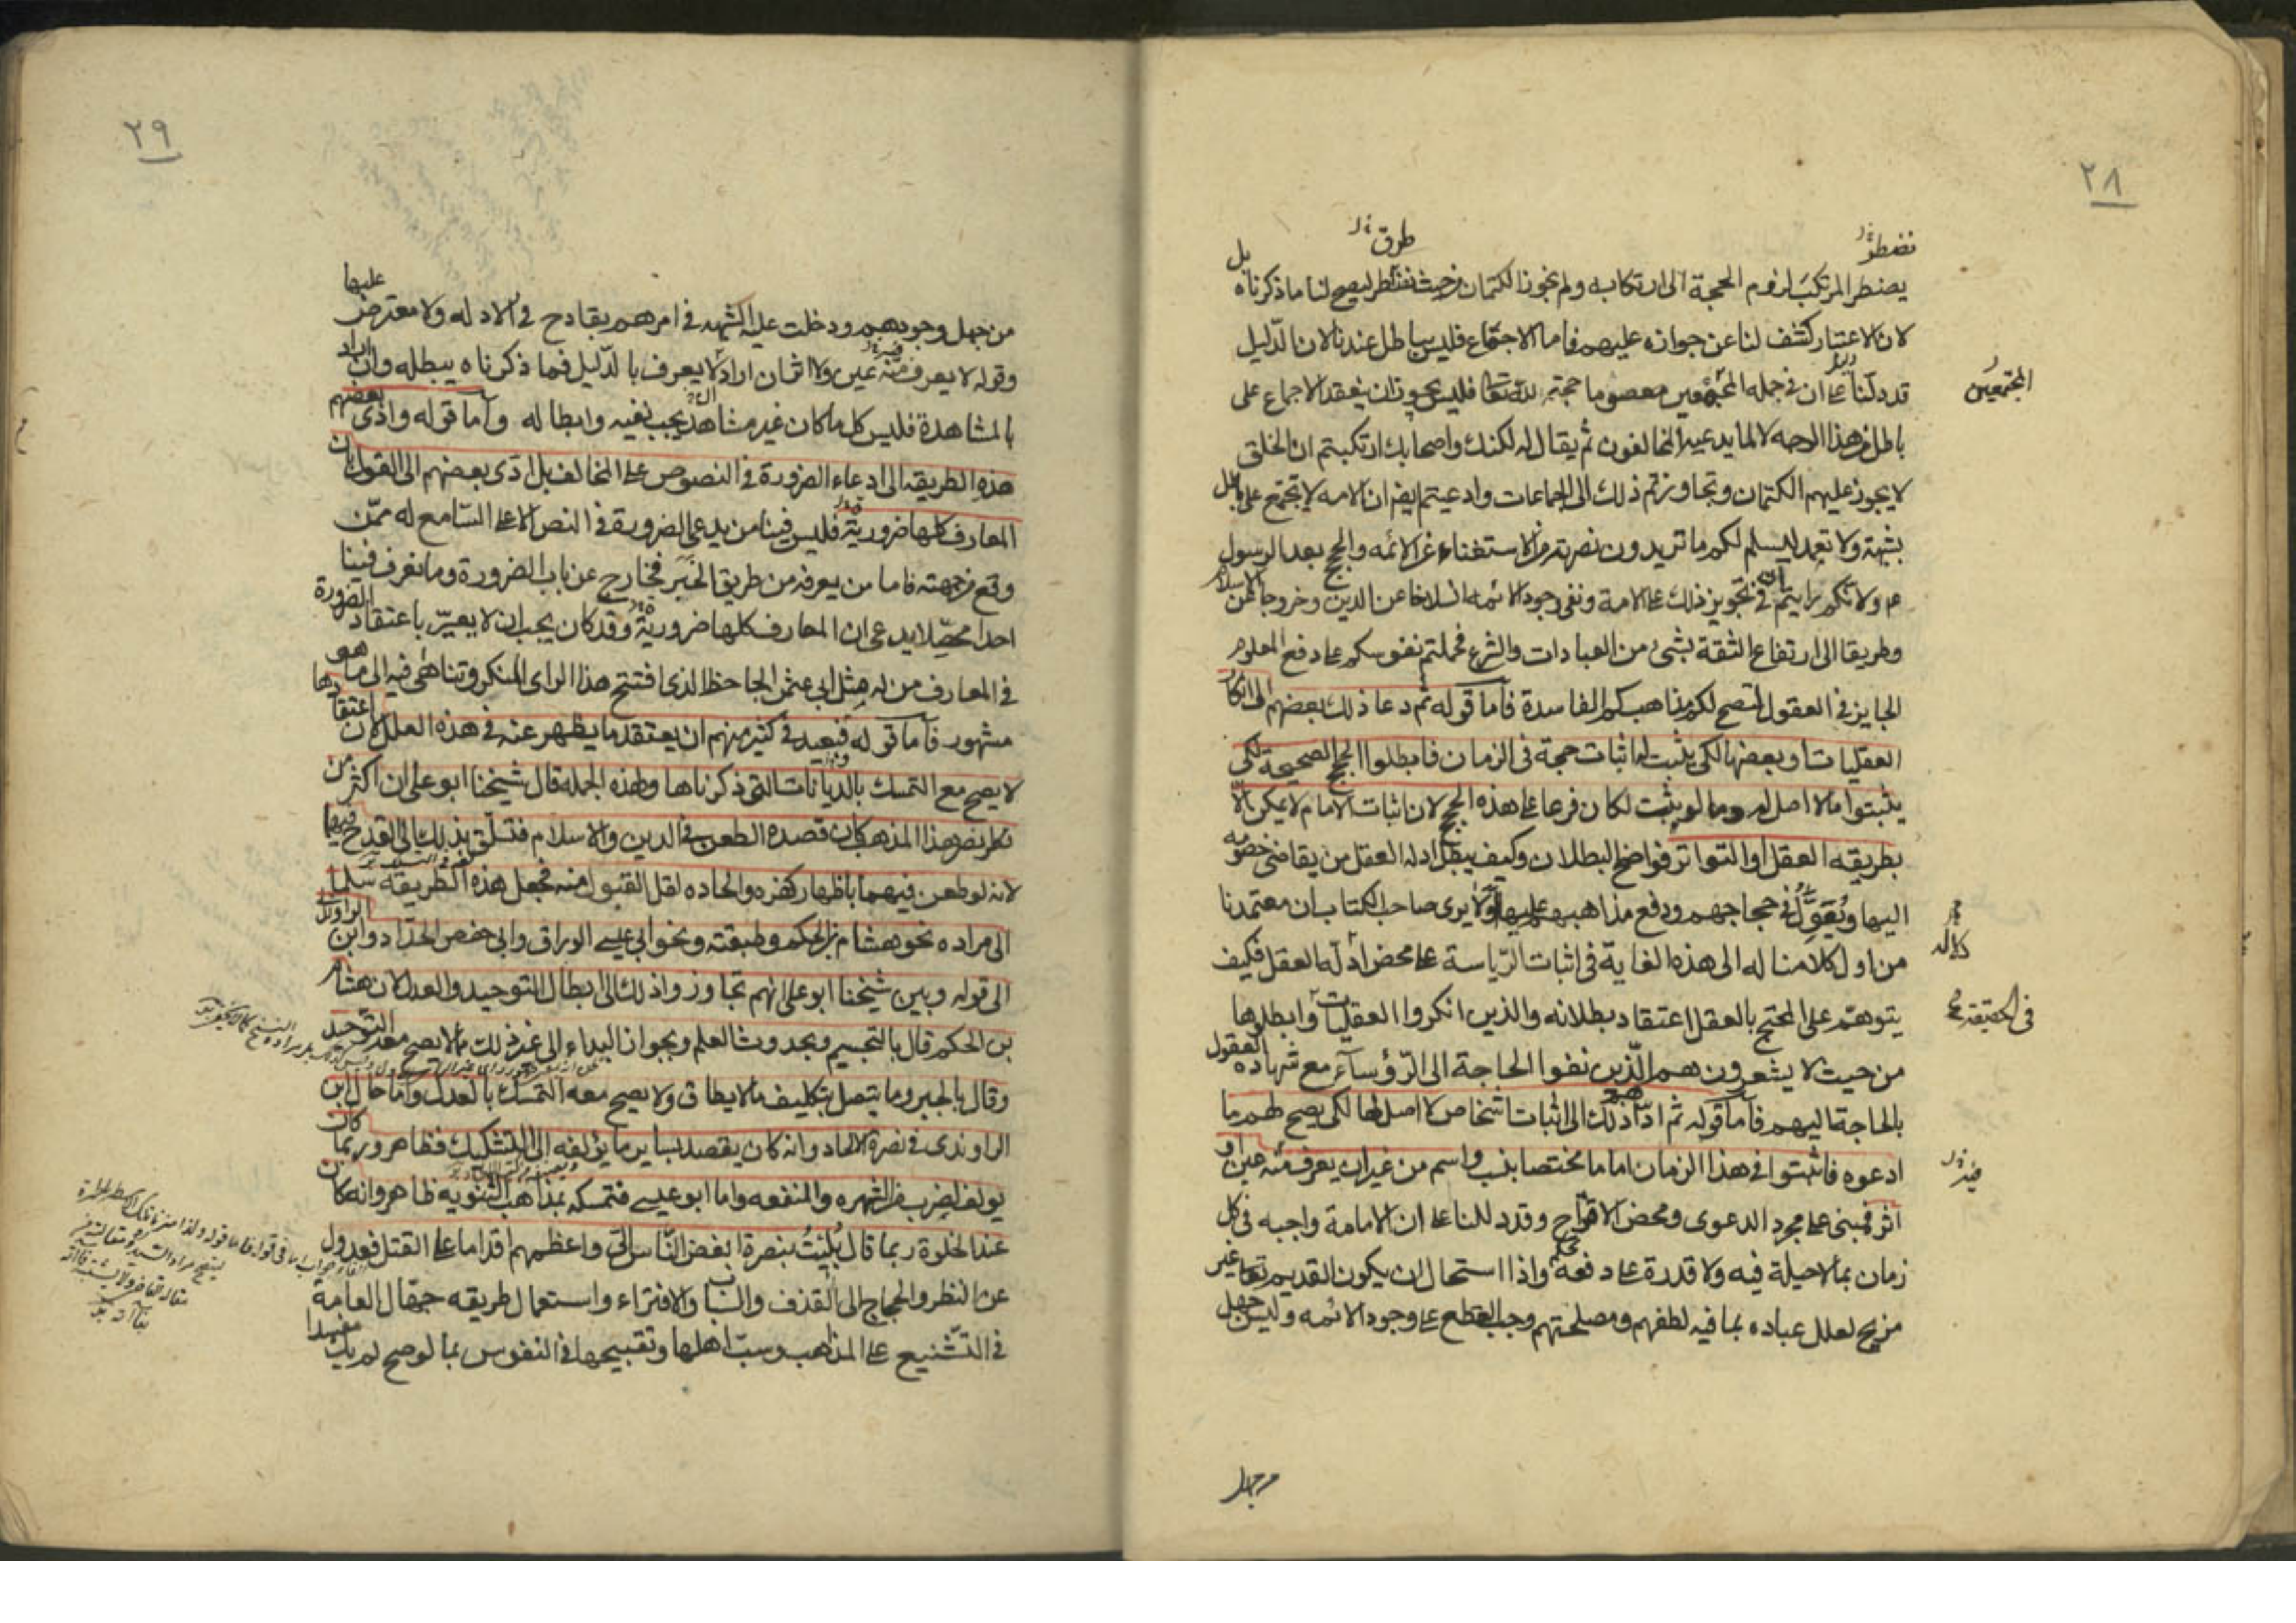 ٢٨
نضطر
طرق
يضطر المرتكب لزوم الحجة الى ارتكابه ولم نجوز الكتمان من حيث نضطر ليصح لنا ما ذكرناه بل
لان الاعتبار كشف لنا عن جوازه عليهم فاما الاجتماع فليس بباطل عندنا لان الدليل
قد دلنا على ان فى جمله المجمعين معصوما حجته لله تعالى فليس يجوز ان ينعقد الاجماع على
المجتمعين
باطل من هذا الوجه لا لما يدعيه المخالفون ثم يقال له لكنك واصحابك ارتكبتم ان الخلق
لا يجوز عليهم الكتمان وتجاوزتم ذلك الى الجماعات وادعيتم ايضا ان الامه لا تجتمع على باطل
بشبهة ولا تعمد ليسلم لكم ما تريدون نصرته من الاستغناء عن الائمه والحجج بعد الرسول
ع م ولانكم رايتم ان فى تجويز ذلك على الامة ونفى وجود الائمه انسلاخا عن الدين وخروجا عن الاسلام
وطريقا الى ارتفاع الثقة بشئ من العبادات والشرع فحملتم نفوسكم على دفع المعلوم
الجايز فى العقول لتصح لكم مذاهبكم الفاسدة فاما قوله ثم دعا ذلك بعضهم الى انكار
العقليات او بعضها لكى يثبت لها اثبات حجة فى الزمان فابطلوا الحجج الصحيحة لكى
يثبتوا ما لا اصل له وما لو يثبت لكان فرعا على هذه الحجج لان اثبات الامام لا يمكن الا
بطريقه العقل او التواتر فواضح البطلان وكيف يبطل ادله العقل من يقاضى خصومه
اليها ويعول فى حجاجهم ودفع مذاهبهم عليها اولا يرى صاحب الكتاب ان معتمدنا
من اول كلامنا له الى هذه الغاية فى اثبات الرياسة على محض ادله العقل فكيف
كلامه
يتوهم على المحتج بالعقل اعتقاد بطلانه والذين انكروا العقليات وابطلوها
فى الحقيقة
من حيث لا يشعرون هم الذين نفوا الحاجة الى الرؤساء مع شهاده العقول
بالحاجة اليهم فاما قوله ثم اداهم ذلك الى اثبات اشخاص لا اصل لها لكى يصح لهم ما
ادعوه فاثبتوا فى هذا الزمان اماما مختصا بنسب واسم من غير ان يعرف منه عين او
فيه
اثر فمبنى على مجرد الدعوى ومحض الاقتراح وقد دللنا على ان الامامة واجبه فى كل
زمان بما لا حيلة فيه ولا قدرة على دفعه واذا استحال ان يكون القديم تعالى غير
مزيح لعلل عباده بما فيه لطفهم ومصلحتهم وجب القطع على وجود الائمه وليس جهل
من جهل
٢٩
من جهل وجودهم ودخلت عليه الشبهه فى امرهم بقادح فى الادله ولا معترض عليها
وقوله لا يعرف منه عين ولا اثر ان اراد لا يعرف بالدليل فما ذكرناه يبطله وان اراد
بالمشاهدة فليس كل ما كان غير مشاهد يجب نفيه وابطاله واما قوله واذى بعضهم
هذه الطريقه الى ادعاء الضرورة فى النصوص على المخالف بل ادى بعضهم الى القول بان
المعارف كلها ضرورية فليس فينا من يدعى الضرورة فى النص الا على السامع له ممن
وقع من جهته فاما من يعرفه من طريق الخبر فخارج عن باب الضرورة وما نعرف فينا
احدا محصلا يدعى ان المعارف كلها ضرورية وقد كان يجب ان لا يعير باعتقاد الضرورة
فى المعارف من له مثل ابى عثمن الجاحظ الذى افتتح هذا الراى المنكر وتناهى فيه الى ما هو
مشهور فاما قوله فبعيد فى كثير منهم ان يعتقد ما يظهر عنه فى هذه العلل لان اعتقادها
لا يصح مع التمسك بالديانات التى ذكرناها ولهذه الجمله قال شيخنا ابو على ان اكثر من
نصر هذا المذهب كان قصده الطعن فى الدين والاسلام فتسلق بذلك الى القدح فيهما
لانه لو طعن فيهما باظهار كفره والحاده لقل القبول منه فجعل هذه الطريقه سلما
الى مراده نحو هشام بن الحكم وطبقته ونحو ابى عيسى الوراق وابى حفص الحداد وابن الراوندى
الى قوله وبين شيخنا ابو على انهم تجاوزوا ذلك الى ابطال التوحيد والعدل لان هشام
بن الحكم قال بالتجسيم وبحدوث العلم وبجواز البداء الى غير ذلك مما لا يصح معه التوحيد
وقال بالجبر وما يتصل بتكليف ما لا يطاق ولا يصح معه التمسك بالعدل واما حال ابن
الراوندى فى نصرة الالحاد وانه كان يقصد بساير ما يؤلفه الى التشكيك فظاهر وربما كان
يولف لضرب من الشهره والمنفعه واما ابو عيسى فتمسكه بمذاهب الثنويه ظاهر وانه كان
عند الخلوة ربما قال بليت بنصرة ابغض الناس الى واعظمهم اقداما على القتل فعدول
عن النظر والحجاج الى القذف والسباب والافتراء واستعمال طريقه جهال العامة
فى التشنيع على المذاهب وسب اهلها وتقبيحها فى النفوس بما لو صح لم يك مفسدا